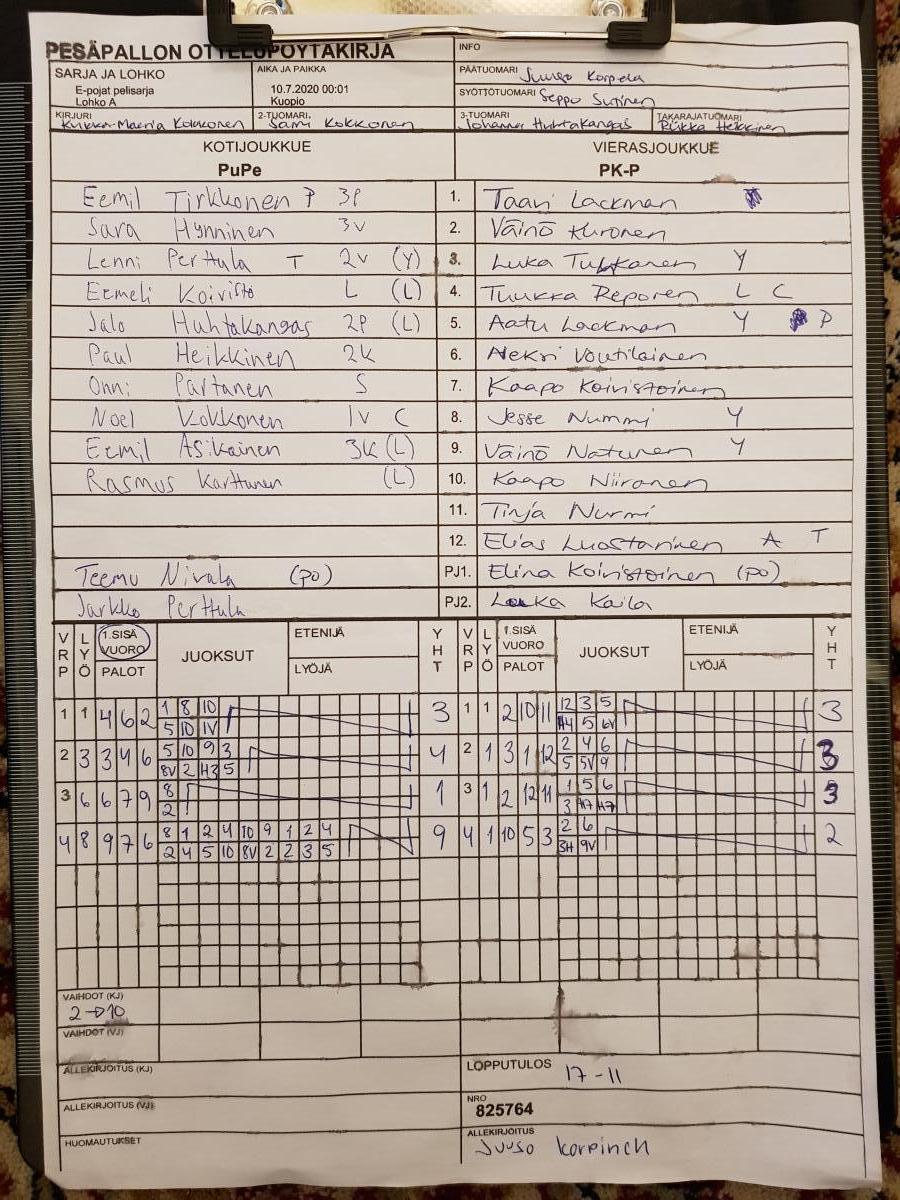 PESÄPALLON OTTELUPÖYTÄKIRJA
INFO
SARJA JA LOHKO
E-pojat pelisarja
Lohko A
AIKA JA PAIKKA
10.7.2020 00:01
Kuopio
PÄÄTUOMARI Juuso Korpela
SYÖTTÖTUOMARI Seppo Sutinen
KIRJURI Kukka-Maaria Kokkonen
2-TUOMARI Sami Kokkonen
3-TUOMARI Johanna Huhtakangas
TAKARAJATUOMARI Riikka Heikkinen
KOTIJOUKKUE
PuPe
VIERASJOUKKUE
PK-P
Eemil Tirkkonen P 3P 1. Taavi Lackman
Sara Hynninen 3V 2. Väinö Kuronen
Lenni Perttula T 2V (Y) 3. Luka Tukkanen Y
Eemeli Koivisto L (L) 4. Tuukka Reponen L C
Jalo Huhtakangas 2P (L) 5. Aatu Lackman Y P
Paul Heikkinen 2K 6. Aleksi Voutilainen
Onni Partanen S 7. Kaapo Koivistoinen
Noel Kokkonen 1V C 8. Jesse Nummi Y
Eemil Asikainen 3K (L) 9. Väinö Natunen Y
Rasmus Karttunen (L) 10. Kaapo Niiranen
11. Tinja Nurmi
12. Elias Luostarinen A T
Teemu Nivala (po) PJ1. Elina Koivistoinen (po)
Jarkko Perttula PJ2. Kaila
VRP LYÖ 1.SISÄ VUORO PALOT JUOKSUT ETENIJÄ LYÖJÄ YHT VRP LYÖ 1.SISÄ VUORO PALOT JUOKSUT ETENIJÄ LYÖJÄ YHT
1 1 4 6 2 1 8 10 3 1 1 2 10 11 12 3 5 3
5 10 1V H4 5 6V
2 3 3 4 6 5 10 9 3 4 2 1 3 1 12 2 4 6 3
8V 2 H3 5 5 5V 9
3 6 6 7 9 8 1 3 1 2 12 11 1 5 6 3
2 3 H7 H7
4 8 9 7 6 8 1 2 4 10 9 1 2 4 9 4 1 10 5 3 2 6 2
2 4 5 10 8V 2 2 3 5 3H 9V
VAIHDOT (KJ)
2→10
VAIHDOT (VJ)
ALLEKIRJOITUS (KJ)
LOPPUTULOS 17-11
ALLEKIRJOITUS (VJ)
NRO
825764
HUOMAUTUKSET
ALLEKIRJOITUS
Juuso